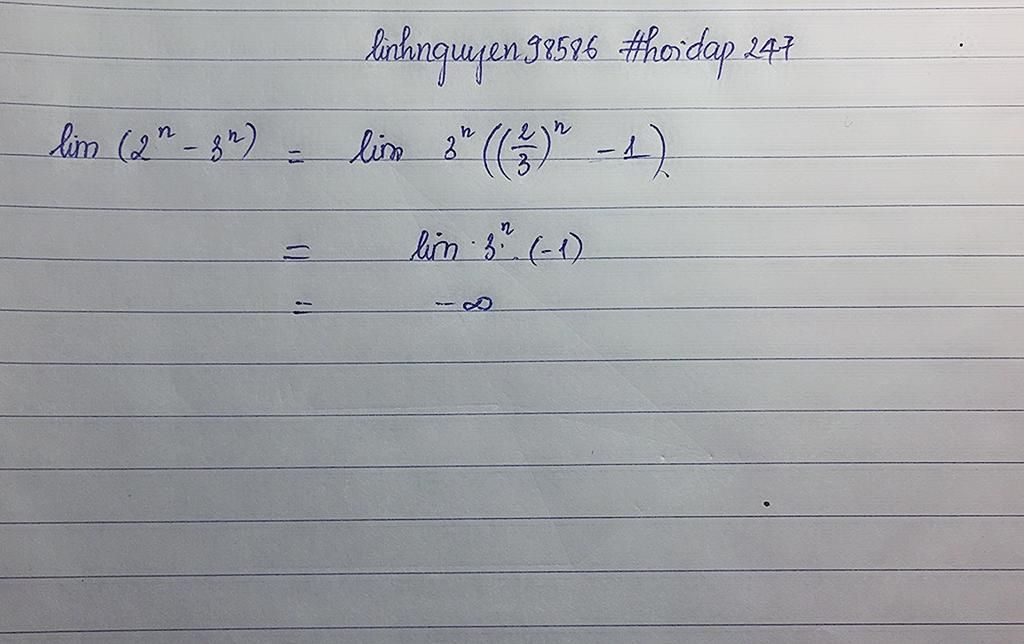 linhnguyen98586 #hoidap 247
lim (2ⁿ - 3ⁿ) = lim 3ⁿ((2/3)ⁿ - 1)
= lim 3ⁿ . (-1)
= -∞